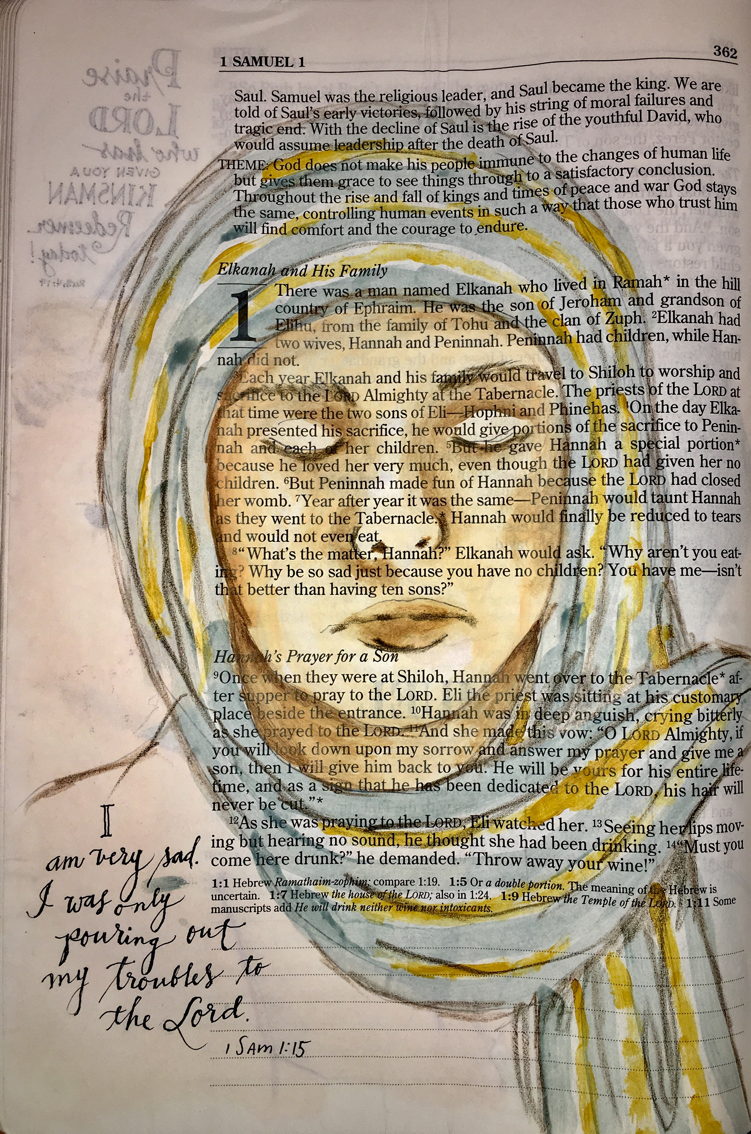 1 SAMUEL 1
362
Saul. Samuel was the religious leader, and Saul became the king. We are
told of Saul's early victories, followed by his string of moral failures and
tragic end. With the decline of Saul is the rise of the youthful David, who
would assume leadership after the death of Saul.
THEME: God does not make his people immune to the changes of human life
but gives them grace to see things through to a satisfactory conclusion.
Throughout the rise and fall of kings and times of peace and war God stays
the same, controlling human events in such a way that those who trust him
will find comfort and the courage to endure.
Elkanah and His Family
1 There was a man named Elkanah who lived in Ramah* in the hill
country of Ephraim. He was the son of Jeroham and grandson of
Elihu, from the family of Tohu and the clan of Zuph. ²Elkanah had
two wives, Hannah and Peninnah. Peninnah had children, while Han-
nah did not.
Each year Elkanah and his family would travel to Shiloh to worship and
sacrifice to the LORD Almighty at the Tabernacle. The priests of the LORD at
that time were the two sons of Eli—Hophni and Phinehas. ⁴On the day Elka-
nah presented his sacrifice, he would give portions of the sacrifice to Penin-
nah and each of her children. ⁵But he gave Hannah a special portion*
because he loved her very much, even though the LORD had given her no
children. ⁶But Peninnah made fun of Hannah because the LORD had closed
her womb. ⁷Year after year it was the same—Peninnah would taunt Hannah
as they went to the Tabernacle.* Hannah would finally be reduced to tears
and would not even eat.
⁸"What's the matter, Hannah?" Elkanah would ask. "Why aren't you eat-
ing? Why be so sad just because you have no children? You have me—isn't
that better than having ten sons?"
Hannah's Prayer for a Son
⁹Once when they were at Shiloh, Hannah went over to the Tabernacle* af-
ter supper to pray to the LORD. Eli the priest was sitting at his customary
place beside the entrance. ¹⁰Hannah was in deep anguish, crying bitterly
as she prayed to the LORD. ¹¹And she made this vow: "O LORD Almighty, if
you will look down upon my sorrow and answer my prayer and give me a
son, then I will give him back to you. He will be yours for his entire life-
time, and as a sign that he has been dedicated to the LORD, his hair will
never be cut."*
¹²As she was praying to the LORD, Eli watched her. ¹³Seeing her lips mov-
ing but hearing no sound, he thought she had been drinking. ¹⁴"Must you
come here drunk?" he demanded. "Throw away your wine!"
1:1 Hebrew Ramathaim-zophim; compare 1:19. 1:5 Or a double portion. The meaning of the Hebrew is
uncertain. 1:7 Hebrew the house of the LORD; also in 1:24. 1:9 Hebrew the Temple of the LORD. 1:11 Some
manuscripts add He will drink neither wine nor intoxicants.
I
am very sad.
I was only
pouring out
my troubles to
the Lord.
1 Sam 1:15
Praise
the
LORD
who has
GIVEN YOU A
KINSMAN
Redeemer
today!